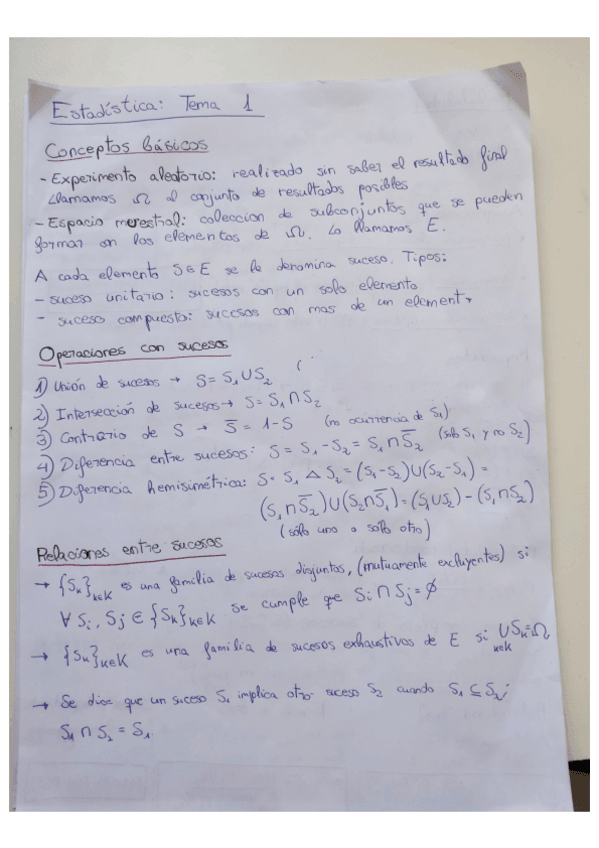 Estadística: Tema 1
Conceptos básicos
- Experimento aleatorio: realizado sin saber el resultado final
Llamamos Ω al conjunto de resultados posibles
- Espacio muestral: colección de subconjuntos que se pueden
formar con los elementos de Ω. Lo llamamos E.
A cada elemento S∈E se le denomina suceso. Tipos:
- suceso unitario: sucesos con un solo elemento
- suceso compuesto: sucesos con mas de un element
Operaciones con sucesos
1) Unión de sucesos → S = S₁ ∪ S₂
2) Intersección de sucesos → S = S₁ ∩ S₂
3) Contrario de S → S̅ = 1 - S (no ocurrencia de S₁)
4) Diferencia entre sucesos: S = S₁ - S₂ = S₁ ∩ S̅₂ (solo S₁ y no S₂)
5) Diferencia hemisimétrica: S = S₁ △ S₂ = (S₁ - S₂) ∪ (S₂ - S₁) =
(S₁ ∩ S̅₂) ∪ (S₂ ∩ S̅₁) = (S₁ ∪ S₂) - (S₁ ∩ S₂)
(sólo uno o sólo otro)
Relaciones entre sucesos
→ {Sₖ}ₖ∈K es una familia de sucesos disjuntos, (mutuamente excluyentes) si
∀ Sᵢ, Sⱼ ∈ {Sₖ}ₖ∈K se cumple que Sᵢ ∩ Sⱼ = ∅
→ {Sₖ}ₖ∈K es una familia de sucesos exhaustivos de E si ∪ₖ∈K Sₖ = Ω
→ Se dice que un suceso S₁ implica otro suceso S₂ cuando S₁ ⊆ S₂;
S₁ ∩ S₂ = S₁.